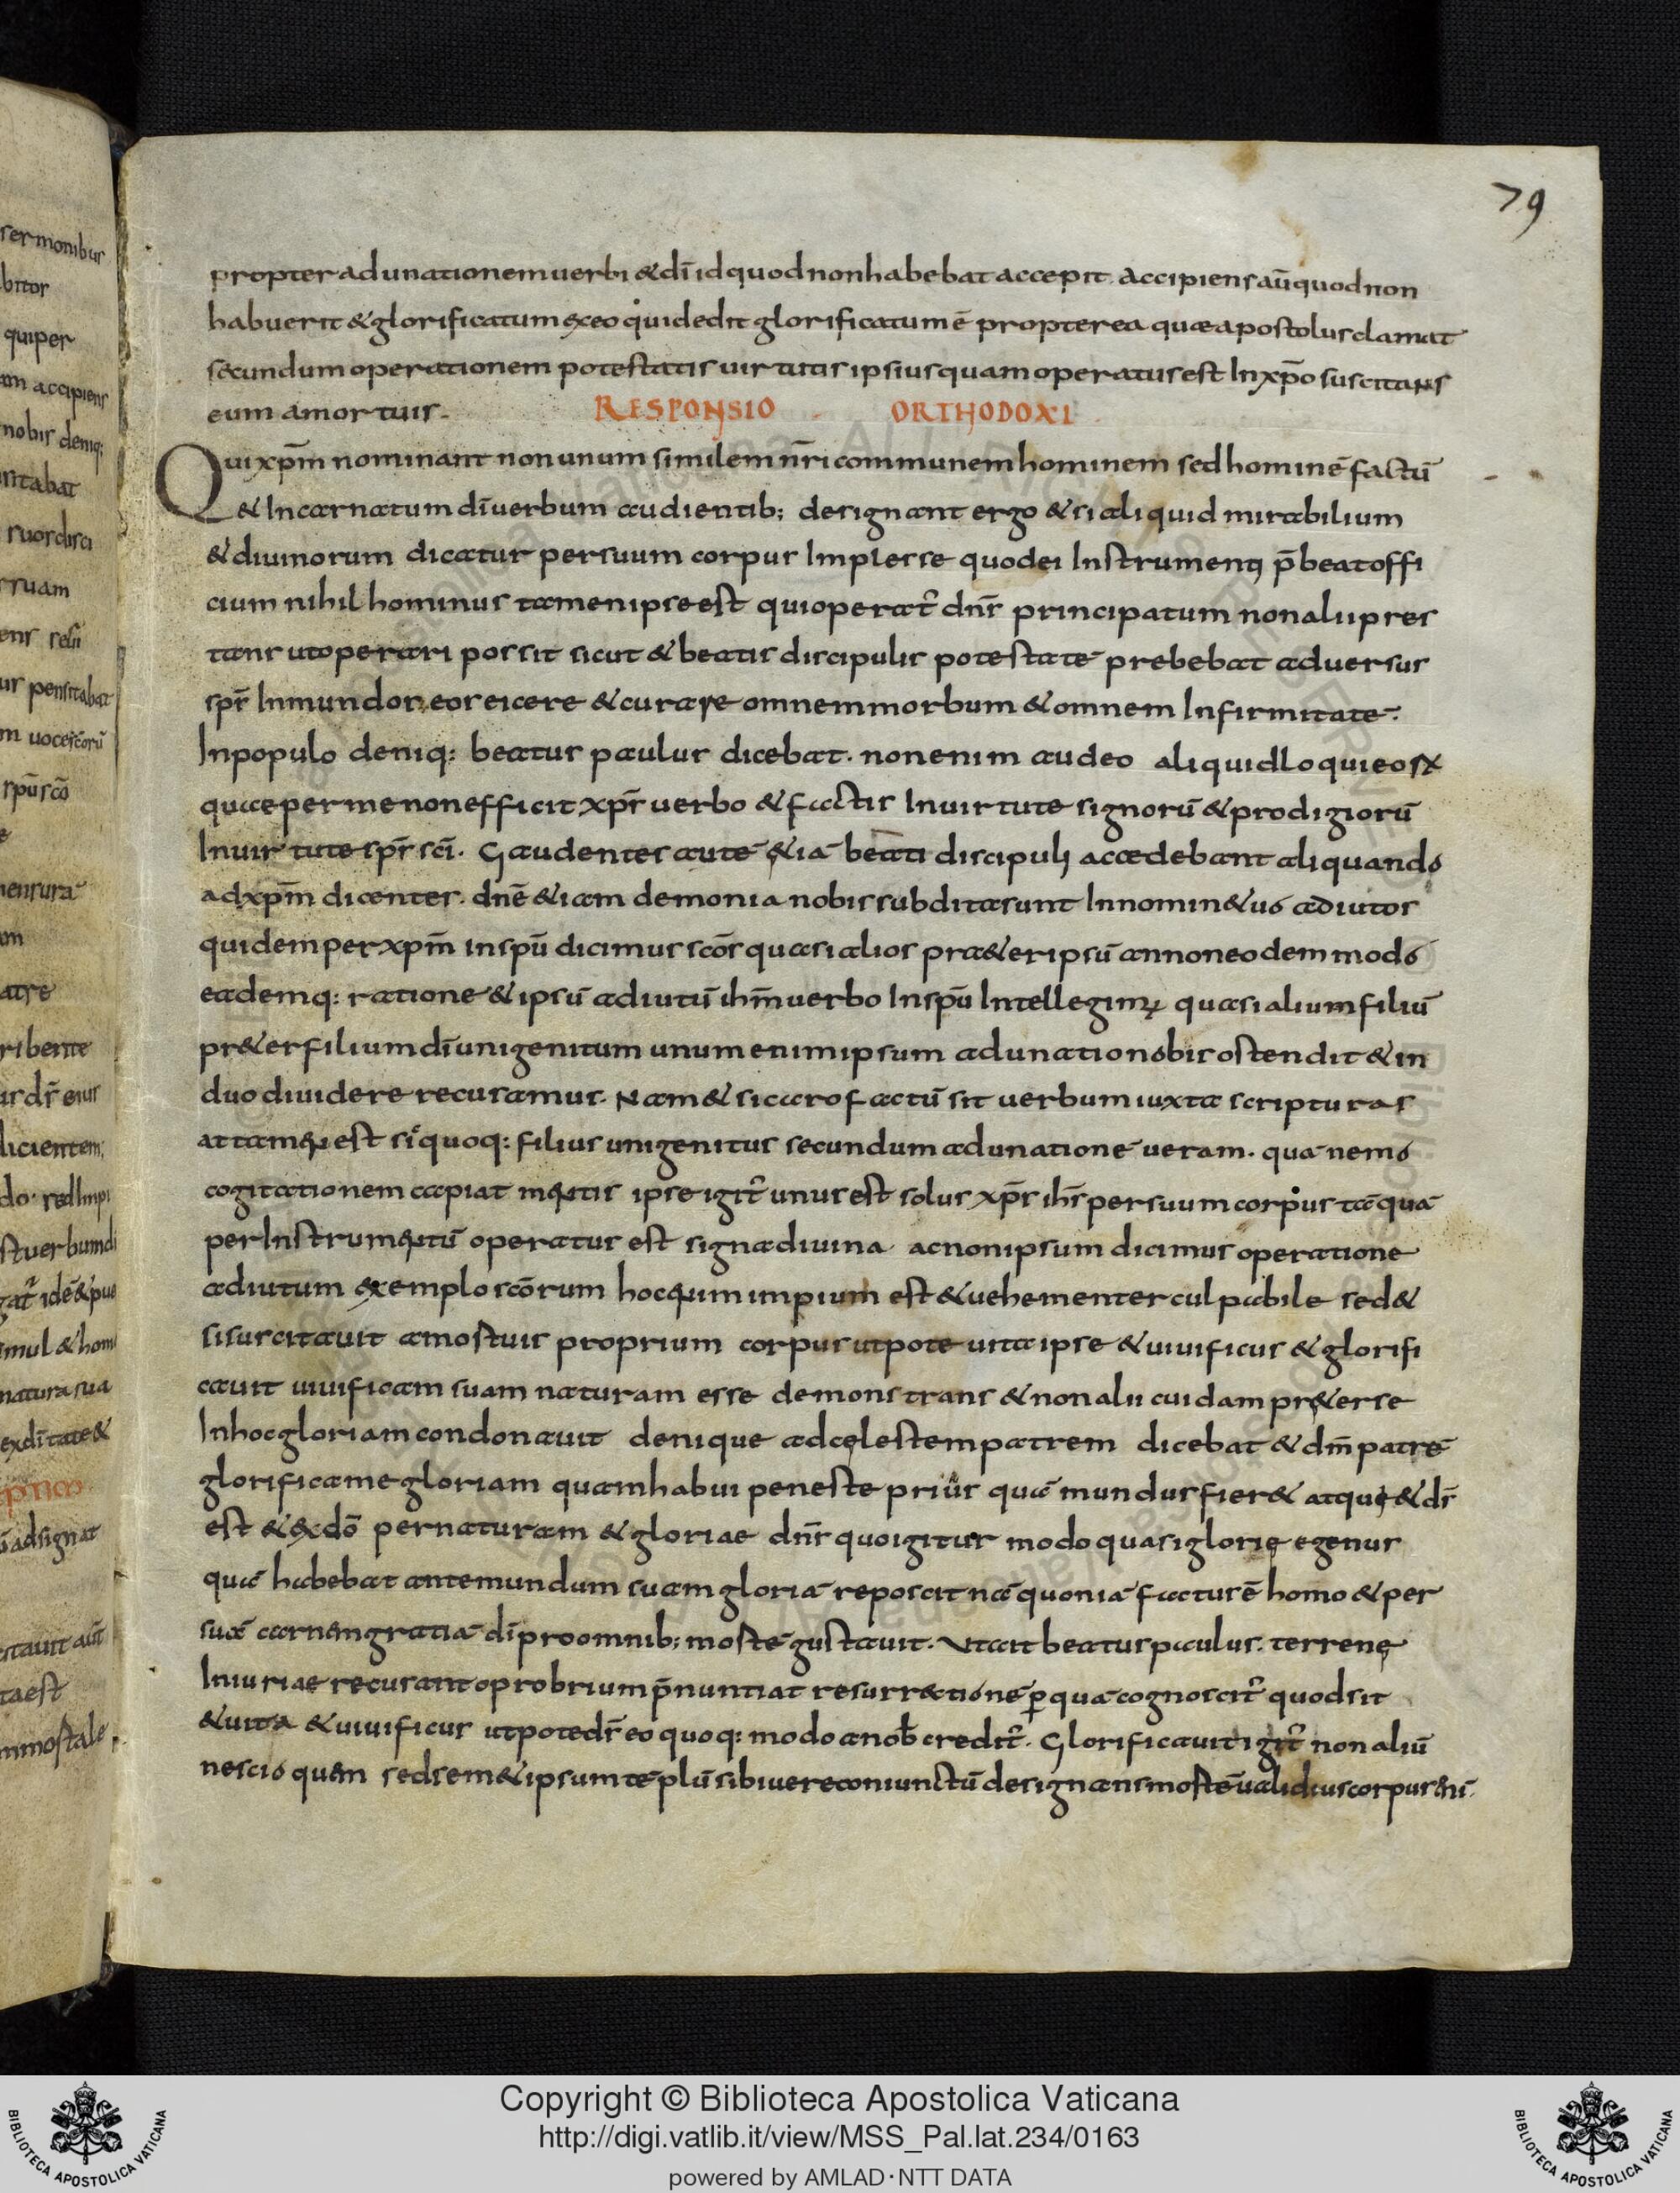 79
propter adunationem uerbi & dī id quod non habebat accepit. Accipiens aū quod non
habuerit & glorificatum exeo qui dedit glorificatum ē propterea quæ apostolus clamat
secundum operationem potestatis uirtutis ipsius quam operatus est In xp̄o suscitans
eum amortuis.
RESPONSIO ORTHODOXI
Qui xp̄m nominant non unum similem nr̄i communem hominem sed hominē factū
& Incarnatum dī uerbum audientib; designant ergo & si aliquid mirabilium
& diuinorum dicatur per suum corpus Implesse quod ei Instrumenti p̄beat offi
cium nihilhominus tamen ipse est qui operat̄ dn̄s principatum non alii pres
tans ut operari possit sicut & beatis discipulis potestatē prebebat aduersus
sps̄ Inmundos eos eicere & curare omnem morbum & omnem Infirmitatē.
In populo deniq: beatus paulus dicebat. non enim audeo aliquid loqui eo⁊
quae per me non efficit xps̄ uerbo & factis In uirtute signorū & prodigiorū
In uirtute sps̄ scī. Gaudentes autē &iā beati discipuli accedebant aliquando
ad xp̄m dicentes. dnē &iam demonia nobis subdita sunt In nomin& uo adiutos
quidem per xp̄m in spū dicimus scōs quasi alios præ&er ipsū an non eodem modo
eademq: ratione & ipsū adiutū ihm̄ uerbo In spū Intellegim; quasi alium filiū
pr&er filium dī unigenitum unum enim ipsum adunatio nobis ostendit & in
duo diuidere recusamus. Nam & si caro factū sit uerbum iuxta scripturas
attamen est sic quoq: filius unigenitus secundum adunationē ueram. quā nemo
cogitationem capiat mentis ipse igit̄ unus est solus xps̄ ihs̄ per suum corpus tāquā
per Instrumentū operatus est signa diuina ac non ipsum dicimus operatione
adiutum exemplo scōrum hoc enim impium est & uehementer culpabile sed &
si suscitauit amortuis proprium corpus utpote uita ipse & uiuificus & glorifi
cauit uiuificam suam naturam esse demonstrans & non alii cuidam pr&er se
In hoc gloriam condonauit denique ad celestem patrem dicebat & dm̄ patrē
glorifica me gloriam quam habui penes te prius quā mundus fier& atque & ds̄
est & ex dō per naturam & gloriae dn̄s quo igitur modo quasi glorie egenus
quā habebat ante mundum suam gloriā reposcit nā quoniā factus ē homo & per
suā carnem gratiā dī pro omnib; mortē gustauit. Ut ait beatus paulus. terrene
Iniuriae recusant oprobrium p̄nuntiat resurrectionē ꝑ quā cognoscit̄ quod sit
& uita & uiuificus utpote ds̄ eo quoq: modo anob̄ credit̄. Glorificauit igit̄ non aliū
nescio quem sed sem&ipsum tēplū sibi uere coniunctū designans mortē ualidius corpus